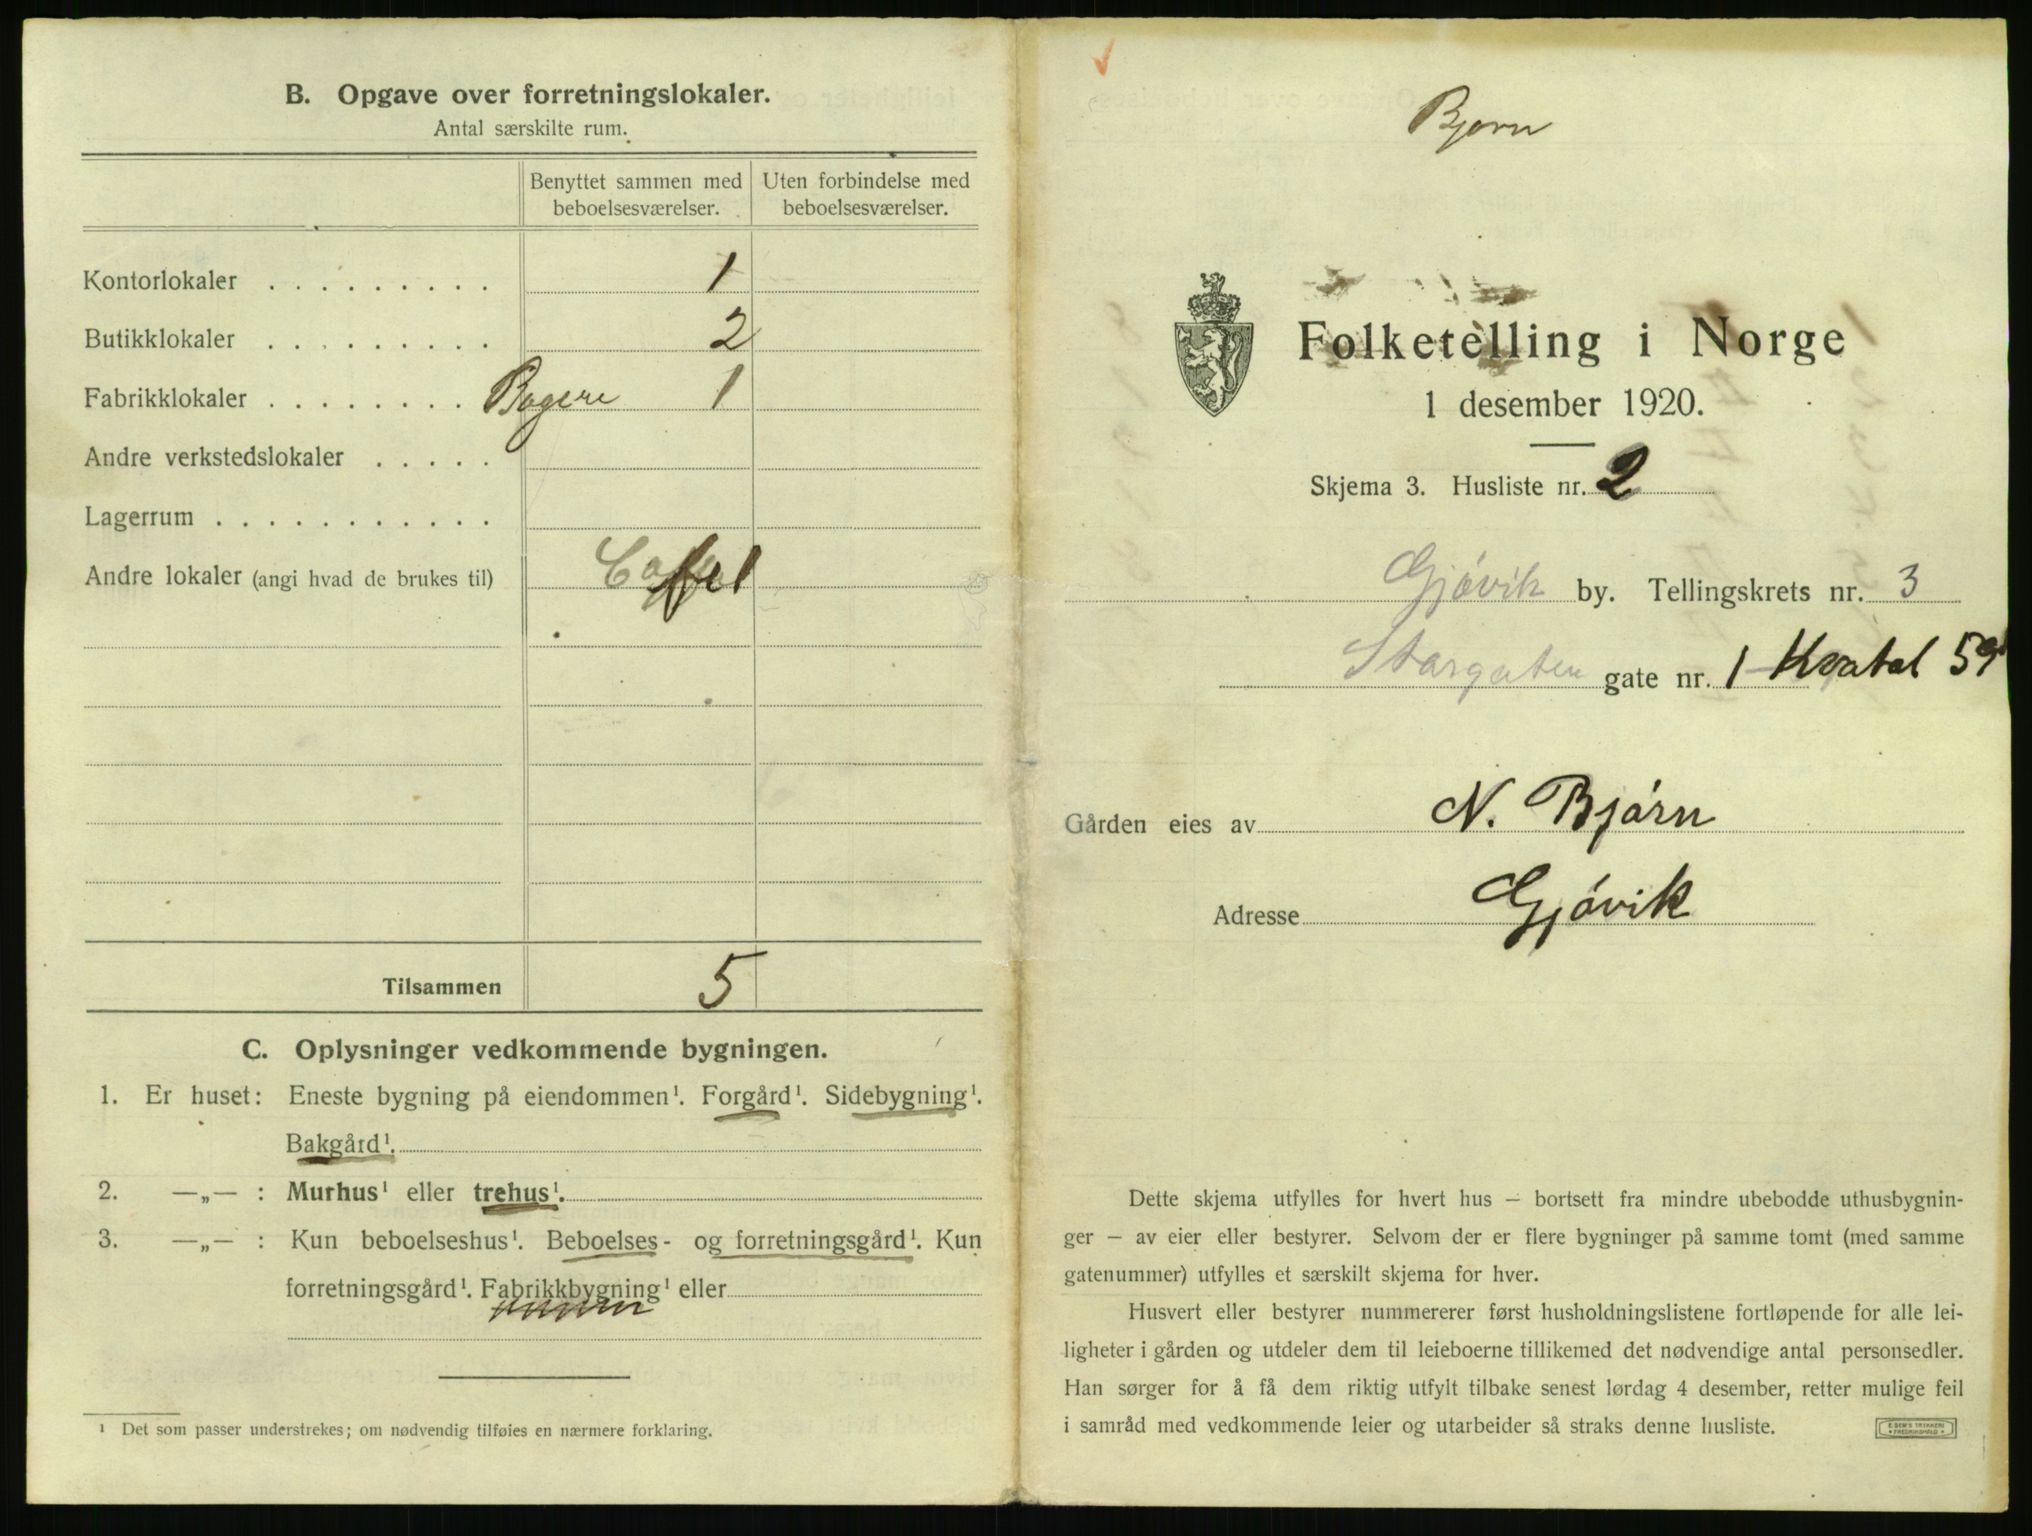 B. Opgave over forretningslokaler.
Antal særskilte rum.
Benyttet sammen med beboelsesværelser.
Uten forbindelse med beboelsesværelser.
Kontorlokaler . . . . . . . . . 1
Butikklokaler . . . . . . . . . 2
Fabrikklokaler . . . . . . . . Bageri 1
Andre verkstedslokaler . . . . .
Lagerrum . . . . . . . . . . .
Andre lokaler (angi hvad de brukes til) Caffe 1
Tilsammen 5
C. Oplysninger vedkommende bygningen.
1. Er huset: Eneste bygning på eiendommen¹. Forgård¹. Sidebygning¹.
Bakgård¹.
2. —„— : Murhus¹ eller trehus¹.
3. —„— : Kun beboelseshus¹. Beboelses- og forretningsgård¹. Kun
forretningsgård¹. Fabrikkbygning¹ eller
¹ Det som passer understrekes; om nødvendig tilføies en nærmere forklaring.
Bjørn
Folketelling i Norge
1 desember 1920.
Skjema 3. Husliste nr. 2
Gjøvik by. Tellingskrets nr. 3
Storgaten gate nr. 1 - Kvatal 59
Gården eies av N. Bjørn
Adresse Gjøvik
Dette skjema utfylles for hvert hus — bortsett fra mindre ubebodde uthusbygnin-
ger — av eier eller bestyrer. Selvom der er flere bygninger på samme tomt (med samme
gatenummer) utfylles et særskilt skjema for hver.
Husvert eller bestyrer nummererer først husholdningslistene fortløpende for alle lei-
ligheter i gården og utdeler dem til leieboerne tillikemed det nødvendige antal personsedler.
Han sørger for å få dem riktig utfylt tilbake senest lørdag 4 desember, retter mulige feil
i samråd med vedkommende leier og utarbeider så straks denne husliste.